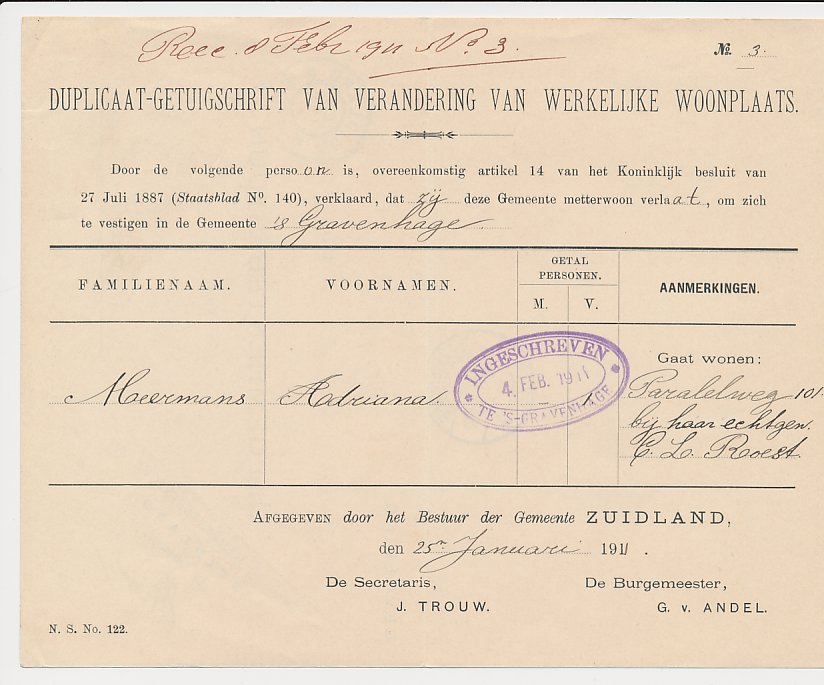 Rec. 8 Febr 1911 No. 3.
No. 3.
DUPLICAAT-GETUIGSCHRIFT VAN VERANDERING VAN WERKELIJKE WOONPLAATS.
Door de volgende persoon is, overeenkomstig artikel 14 van het Koninklijk besluit van
27 Juli 1887 (Staatsblad No. 140), verklaard, dat zij deze Gemeente metterwoon verlaat, om zich
te vestigen in de Gemeente 's Gravenhage.
FAMILIENAAM.
VOORNAMEN.
GETAL
PERSONEN.
M. V.
AANMERKINGEN.
Meermans
Adriana
1
INGESCHREVEN
4. FEB. 1911
TE 'S-GRAVENHAGE
Gaat wonen:
Paralelweg 101.
bij haar echtgen.
C. L. Roest.
AFGEGEVEN door het Bestuur der Gemeente ZUIDLAND,
den 25n Januari 1911.
De Secretaris,
J. TROUW.
De Burgemeester,
G. v. ANDEL.
N. S. No. 122.